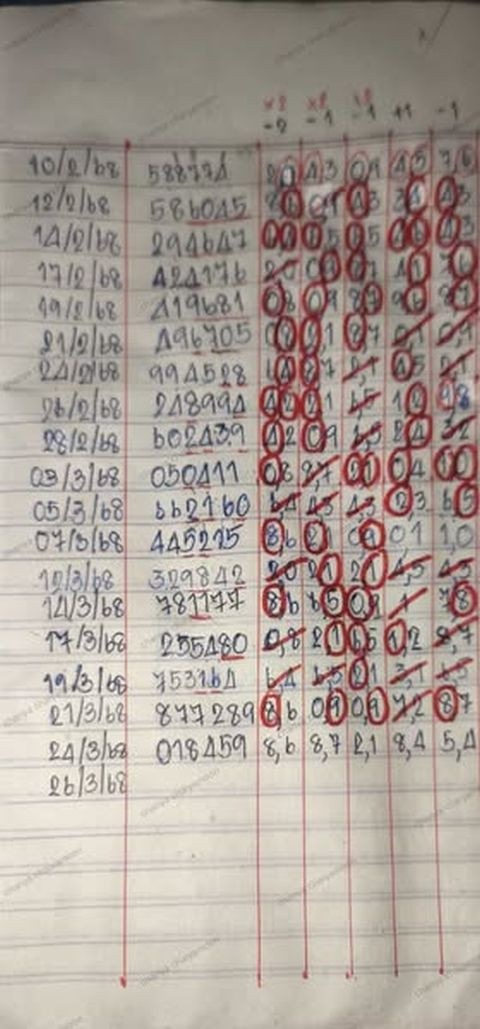 ×8 ×8 ×8
-2 -1 -1 +1 -1
10/2/68 588774 2,0 4,3 0,9 4,5 7,6
12/2/68 586045 4,3 3,4 4,3
14/2/68 294647 0,5 4,3
17/2/68 424176 2,0 0,9 8,7 4,1 7,6
19/2/68 419681 0,8 0,9 8,7 9,6 8,7
21/2/68 496705 2,1 8,7 0,1 0,9
24/2/68 994528 6,4 8,7 2,1 4,5 2,1
26/2/68 248994 4,2 2,1 6,5 1,2 9,8
28/2/68 602439 4,2 0,9 6,5 2,4 3,2
03/3/68 050411 0,8 8,7 2,1 0,4 1,0
05/3/68 662160 6,4 4,3 4,3 2,3 6,5
07/3/68 445215 8,6 2,1 0,9 0,1 1,0
12/3/68 329842 2,0 2,1 2,1 4,5 4,3
14/3/68 781177 8,6 6,5 0,9 7,8
17/3/68 255480 0,8 2,1 6,5 1,2 8,7
19/3/68 753164 6,4 6,5 2,1 3,1 6,5
21/3/68 877289 8,6 0,9 0,9 7,2 8,7
24/3/68 018459 8,6 8,7 2,1 8,4 5,4
26/3/68